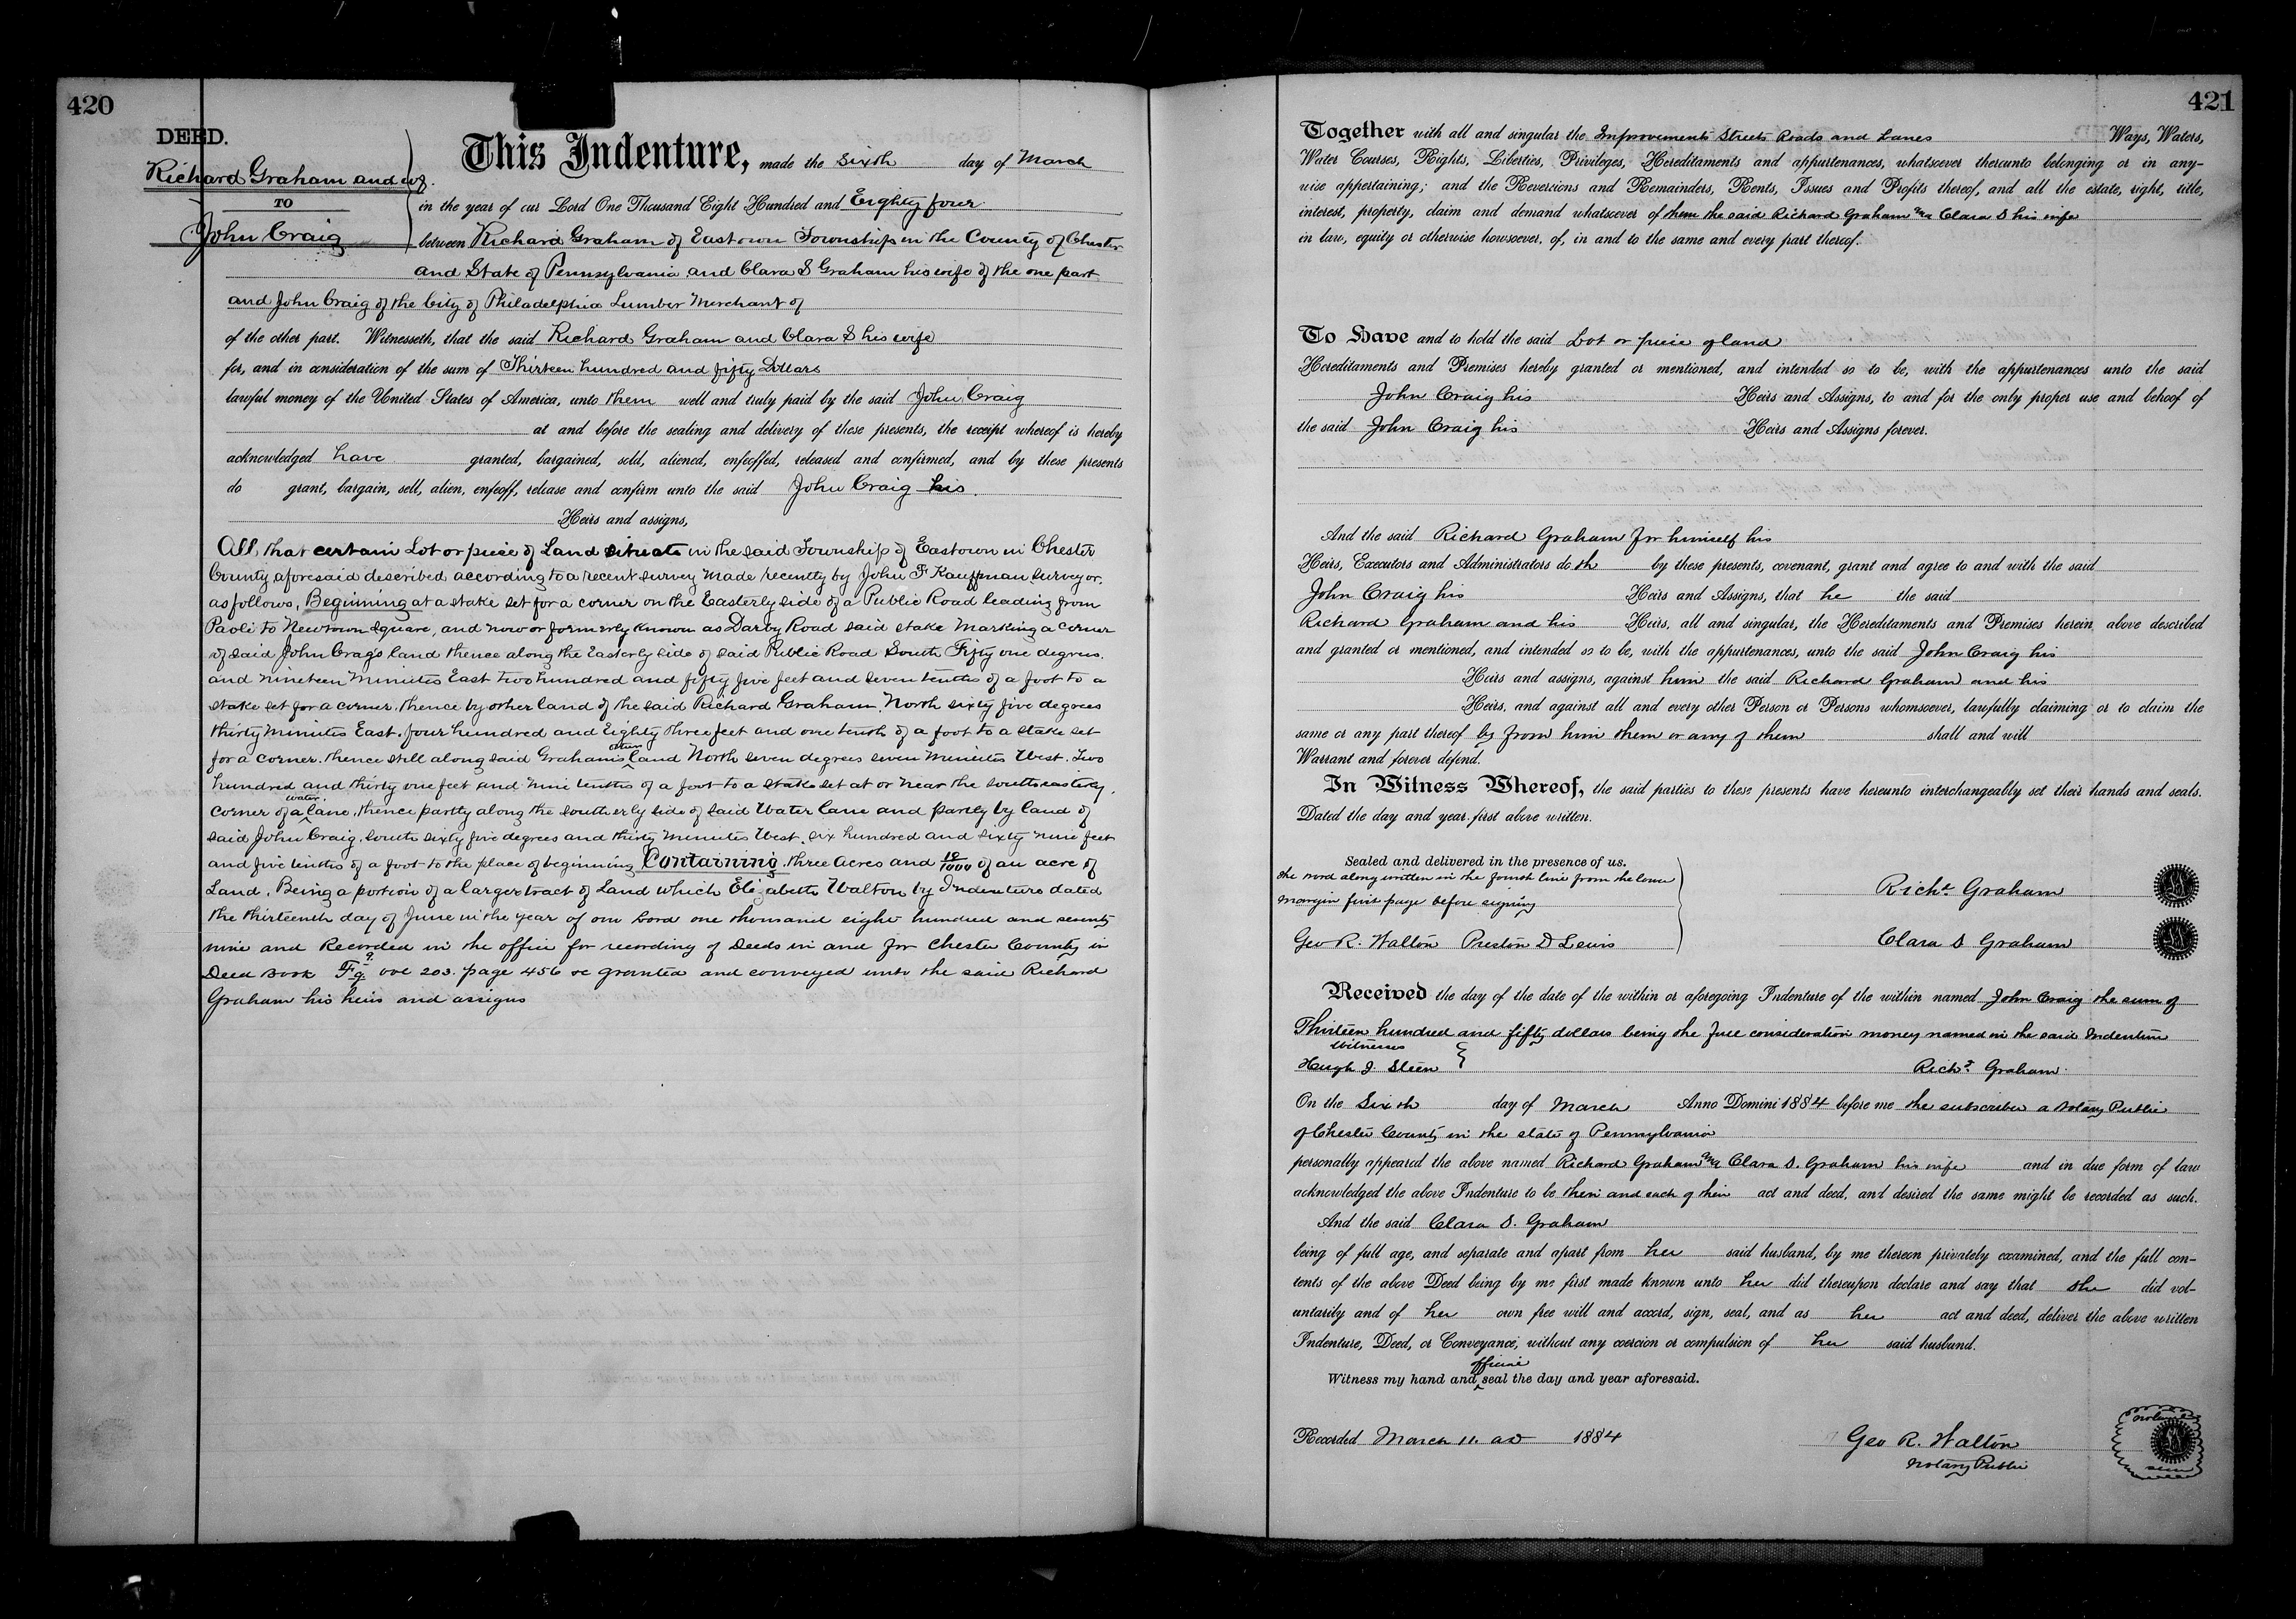 420
DEED.
Richard Graham and wf.
TO
John Craig
This Indenture, made the Sixth day of March
in the year of our Lord One Thousand Eight Hundred and Eighty four
between Richard Graham of Eastown Township in the County of Chester
and State of Pennsylvania and Clara S Graham his wife of the one part
and John Craig of the City of Philadelphia Lumber Merchant of
of the other part. Witnesseth, that the said Richard Graham and Clara S his wife
for, and in consideration of the sum of Thirteen hundred and fifty Dollars
lawful money of the United States of America, unto them well and truly paid by the said John Craig
at and before the sealing and delivery of these presents, the receipt whereof is hereby
acknowledged have granted, bargained, sold, aliened, enfeoffed, released and confirmed, and by these presents
do grant, bargain, sell, alien, enfeoff, release and confirm unto the said John Craig his
Heirs and assigns,
All that certain Lot or piece of Land situate in the said Township of Eastown in Chester
County aforesaid described according to a recent survey made recently by John F Kauffman surveyor.
as follows, Beginning at a stake set for a corner on the Easterly side of a Public Road leading from
Paoli to Newtown Square, and now or formerly known as Darby Road said stake marking a corner
of said John Crags land thence along the Easterly side of said Public Road South Fifty one degrees.
and nineteen minutes East two hundred and fifty five feet and seven tenths of a foot to a
stake set for a corner, thence by other land of the said Richard Graham, North sixty five degrees
thirty minutes East. four hundred and Eighty three feet and one tenth of a foot to a stake set
for a corner. thence still along said Graham's other land North seven degrees seven minutes West. Two
hundred and thirty one feet and nine tenths of a foot to a stake set at or near the southeasterly
corner of a water lane, thence partly along the southerly side of said Water lane and partly by land of
said John Craig. south sixty five degrees and thirty minutes West. six hundred and sixty nine feet
and five tenths of a foot to the place of beginning Containing three acres and 10/1000 of an acre of
Land. Being a portion of a larger tract of Land which Elizabeth Walton by Indenture dated
the thirteenth day of June in the year of our Lord one thousand eight hundred and seventy
nine and Recorded in the office for recording of Deeds in and for Chester County in
Deed Book F 9 vol 203. page 456 &c granted and conveyed unto the said Richard
Graham his heirs and assigns
421
Together with all and singular the Improvements Streets Roads and Lanes Ways, Waters,
Water Courses, Rights, Liberties, Privileges, Hereditaments and appurtenances, whatsoever thereunto belonging or in any-
wise appertaining; and the Reversions and Remainders, Rents, Issues and Profits thereof, and all the estate, right, title,
interest, property, claim and demand whatsoever of them the said Richard Graham and Clara S his wife
in law, equity or otherwise howsoever, of, in and to the same and every part thereof.
To Have and to hold the said Lot or piece of land
Hereditaments and Premises hereby granted or mentioned, and intended so to be, with the appurtenances unto the said
John Craig his Heirs and Assigns, to and for the only proper use and behoof of
the said John Craig his Heirs and Assigns forever.
And the said Richard Graham for himself his
Heirs, Executors and Administrators do th by these presents, covenant, grant and agree to and with the said
John Craig his Heirs and Assigns, that he the said
Richard Graham and his Heirs, all and singular, the Hereditaments and Premises herein above described
and granted or mentioned, and intended so to be, with the appurtenances, unto the said John Craig his
Heirs and assigns, against him the said Richard Graham and his
Heirs, and against all and every other Person or Persons whomsoever, lawfully claiming or to claim the
same or any part thereof by from him them or any of them shall and will
Warrant and forever defend.
In Witness Whereof, the said parties to these presents have hereunto interchangeably set their hands and seals.
Dated the day and year first above written.
Sealed and delivered in the presence of us.
the word along written in the fourth line from the lower
margin first page before signing
Geo R. Walton Preston D Lewis
Richd. Graham
Clara S Graham
Received the day of the date of the within or aforegoing Indenture of the within named John Craig the sum of
Thirteen hundred and fifty dollars being the full consideration money named in the said Indenture
Witnesses
Hugh J. Steen
Richd. Graham.
On the Sixth day of March Anno Domini 1884 before me the subscriber a Notary Public
of Chester County in the state of Pennsylvania
personally appeared the above named Richard Graham and Clara S. Graham his wife and in due form of law
acknowledged the above Indenture to be their and each of their act and deed, and desired the same might be recorded as such.
And the said Clara S. Graham
being of full age, and separate and apart from her said husband, by me thereon privately examined, and the full con-
tents of the above Deed being by me first made known unto her did thereupon declare and say that she did vol-
untarily and of her own free will and accord, sign, seal, and as her act and deed, deliver the above written
Indenture, Deed, or Conveyance, without any coercion or compulsion of her said husband.
Witness my hand and official seal the day and year aforesaid.
Recorded March 11. AD 1884
Geo R. Walton
Notary Public
Notarial
seal